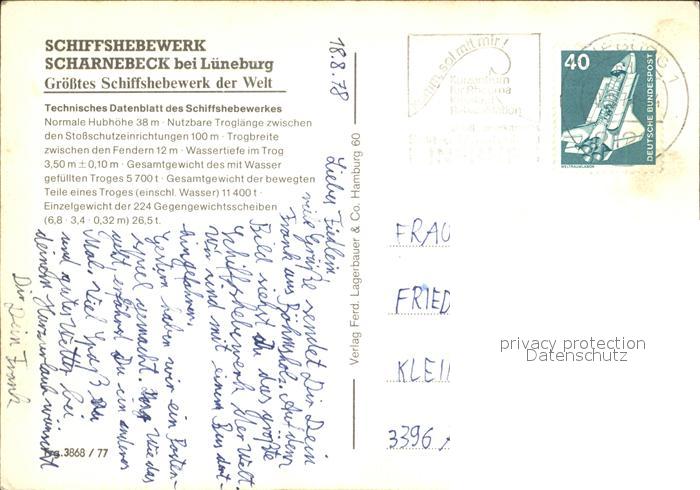 SCHIFFSHEBEWERK
SCHARNEBECK bei Lüneburg
Größtes Schiffshebewerk der Welt
Technisches Datenblatt des Schiffshebewerkes
Normale Hubhöhe 38 m · Nutzbare Troglänge zwischen
den Stoßschutzeinrichtungen 100 m · Trogbreite
zwischen den Fendern 12 m · Wassertiefe im Trog
3,50 m ± 0,10 m · Gesamtgewicht des mit Wasser
gefüllten Troges 5 700 t · Gesamtgewicht der bewegten
Teile eines Troges (einschl. Wasser) 11 400 t ·
Einzelgewicht der 224 Gegengewichtsscheiben
(6,8 · 3,4 · 0,32 m) 26,5 t.
18.8.78
Lieber Friedlein!
viele Grüße sendet Dir Dein
Frank aus Böhmsholz. Auf dem
Bild siehst du das größte
Schiffshebewerk der Welt.
Wir sind mit einem Bus dort-
hingefahren.
Gestern haben wir ein Posten-
spiel gemacht. Wie das
geht, erfährst Du ein anderes
Mal. Viel Spaß
und gutes Wetter bei
deinem Kurzurlaub wünscht
Dir Dein Frank
Trg. 3868 / 77
Verlag Ferd. Lagerbauer & Co. Hamburg 60
komm, sol mit mir!
Kurzentrum
für Rheuma
40
DEUTSCHE BUNDESPOST
WELTRAUMLABOR
FRAU
FRIED
KLEI
3396
privacy protection
Datenschutz